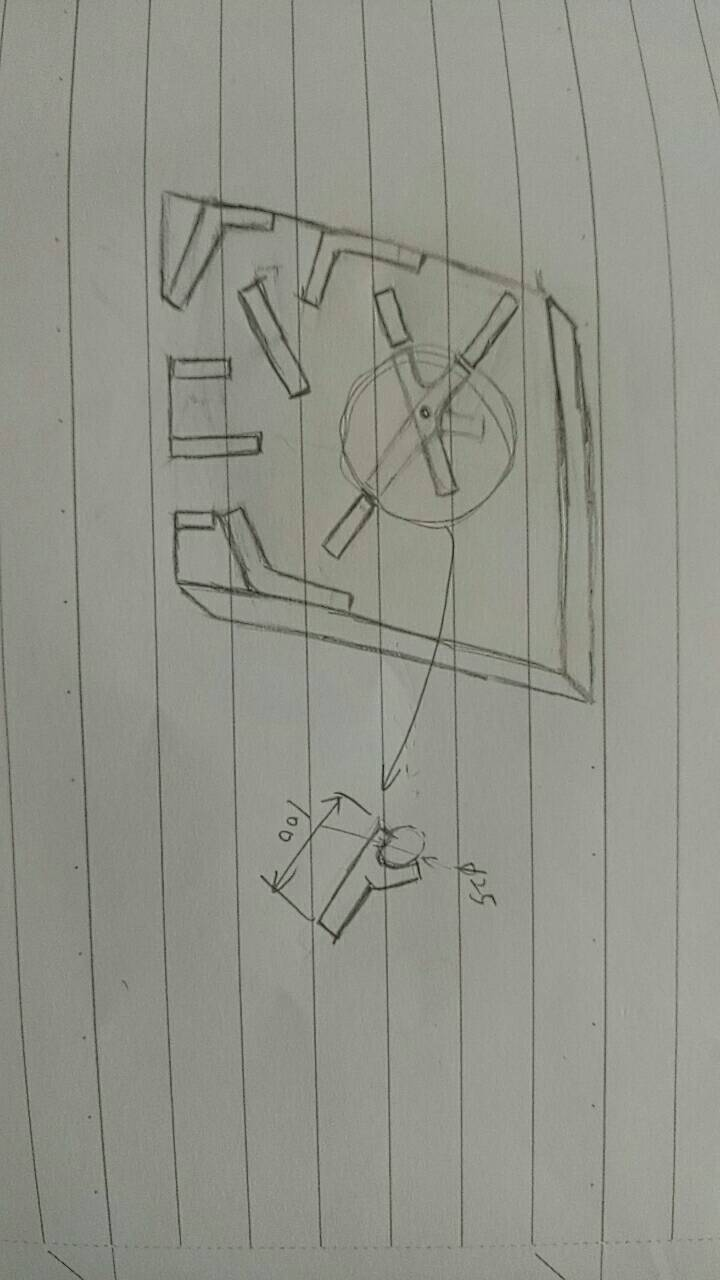 100
φ25